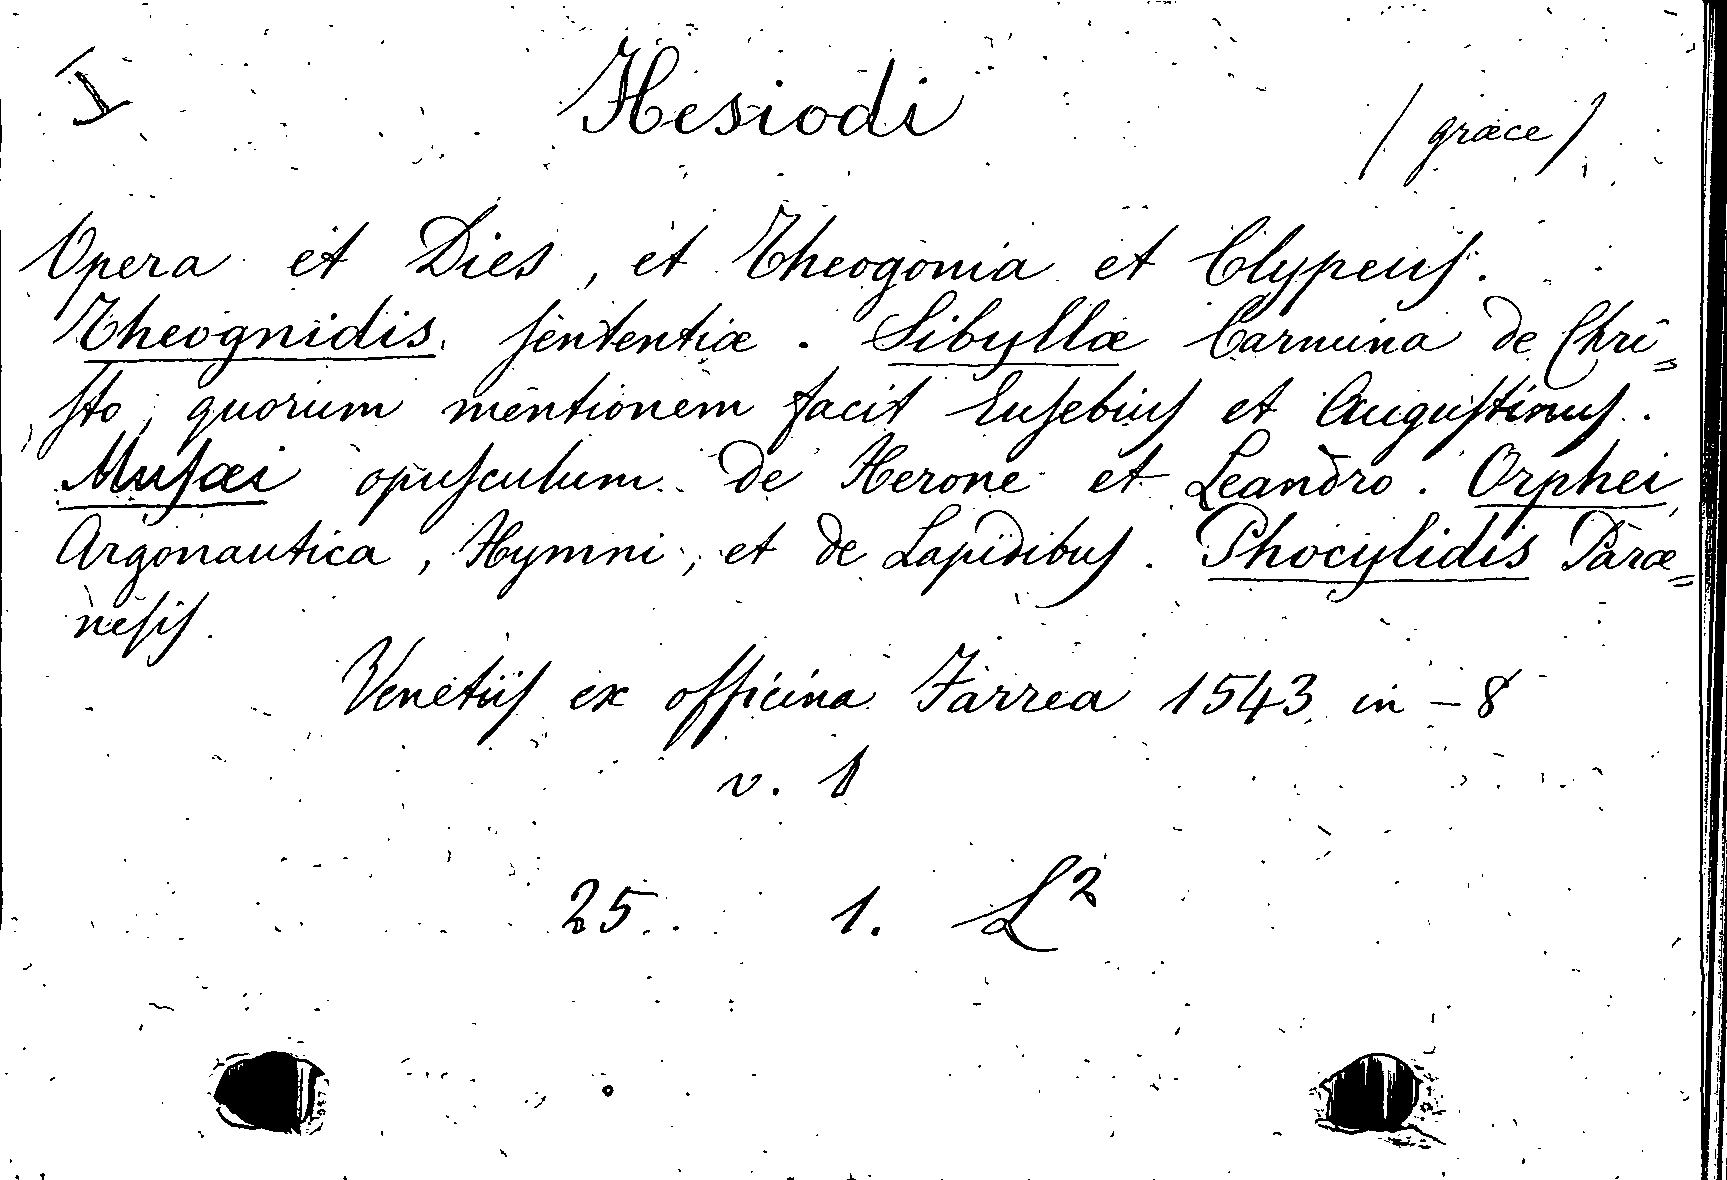 I
Hesiodi
( græce )
Opera et Dies, et Theogonia et Clypeus.
Theognidis sententiæ. Sibyllæ Carmina de Chri=
sto, quorum mentionem facit Eusebius et Augustinus.
Musæi opusculum de Herone et Leandro. Orphei
Argonautica, Hymni, et de Lapidibus. Phocylidis Paræ=
nesis.
Venetiis ex officina Farrea 1543 in-8
v. 1
25. 1. L²